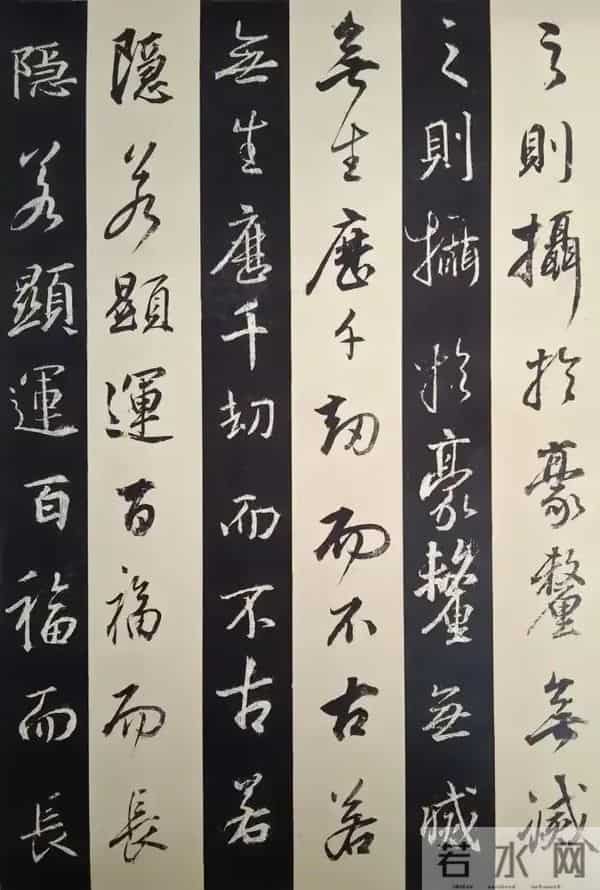 之則攝於豪釐無滅
之則攝於豪釐無滅
無生歷千劫而不古若
無生歷千劫而不古若
隱若顯運百福而長
隱若顯運百福而長
若水网